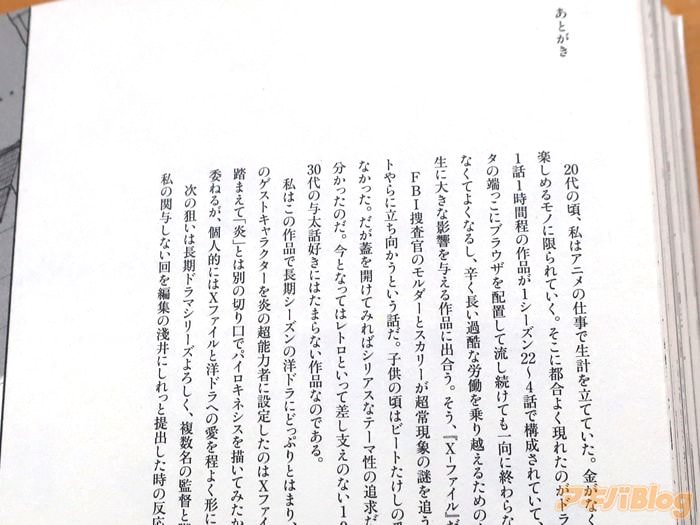 あとがき
20代の頃、私はアニメの仕事で生計を立てていた。金がなく
楽しめるモノに限られていく。そこに都合よく現れたのがドラ
1話1時間程の作品が1シーズン22〜4話で構成されていて、
タの端っこにブラウザを配置して流し続けても一向に終わらな
なくてよくなるし、辛く長い過酷な労働を乗り越えるための
生に大きな影響を与える作品に出合う。そう、『X-ファイル』が
FBI捜査官のモルダーとスカリーが超常現象の謎を追う
トやらに立ち向かうという話だ。子供の頃はビートたけしの
なかった。だが蓋を開けてみればシリアスなテーマ性の追求だ
分かったのだ。今となってはレトロといって差し支えのない1
30代の与太話好きにはたまらない作品なのである。
私はこの作品で長期シーズンの洋ドラにどっぷりとはまり、
のゲストキャラクターを炎の超能力者に設定したのはXファイ
踏まえて「炎」とは別の切り口でパイロキネシスを描いてみたか
委ねるが、個人的にはXファイルと洋ドラへの愛を程よく形に
次の狙いは長期ドラマシリーズよろしく、複数名の監督と
私の関与しない回を編集の淺井にしれっと提出した時の反応
アキバBlog